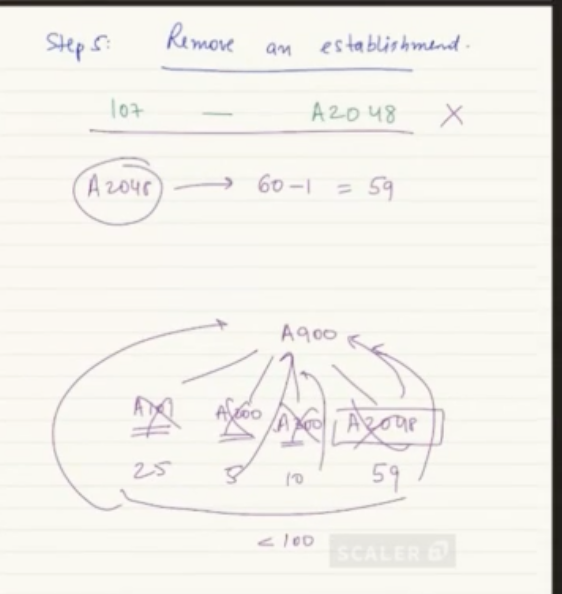 Step 5: Remove an establishmend.
107 — A2048 X
A2048 → 60-1 = 59
A900
A2048
25 5 10 59
< 100
SCALER